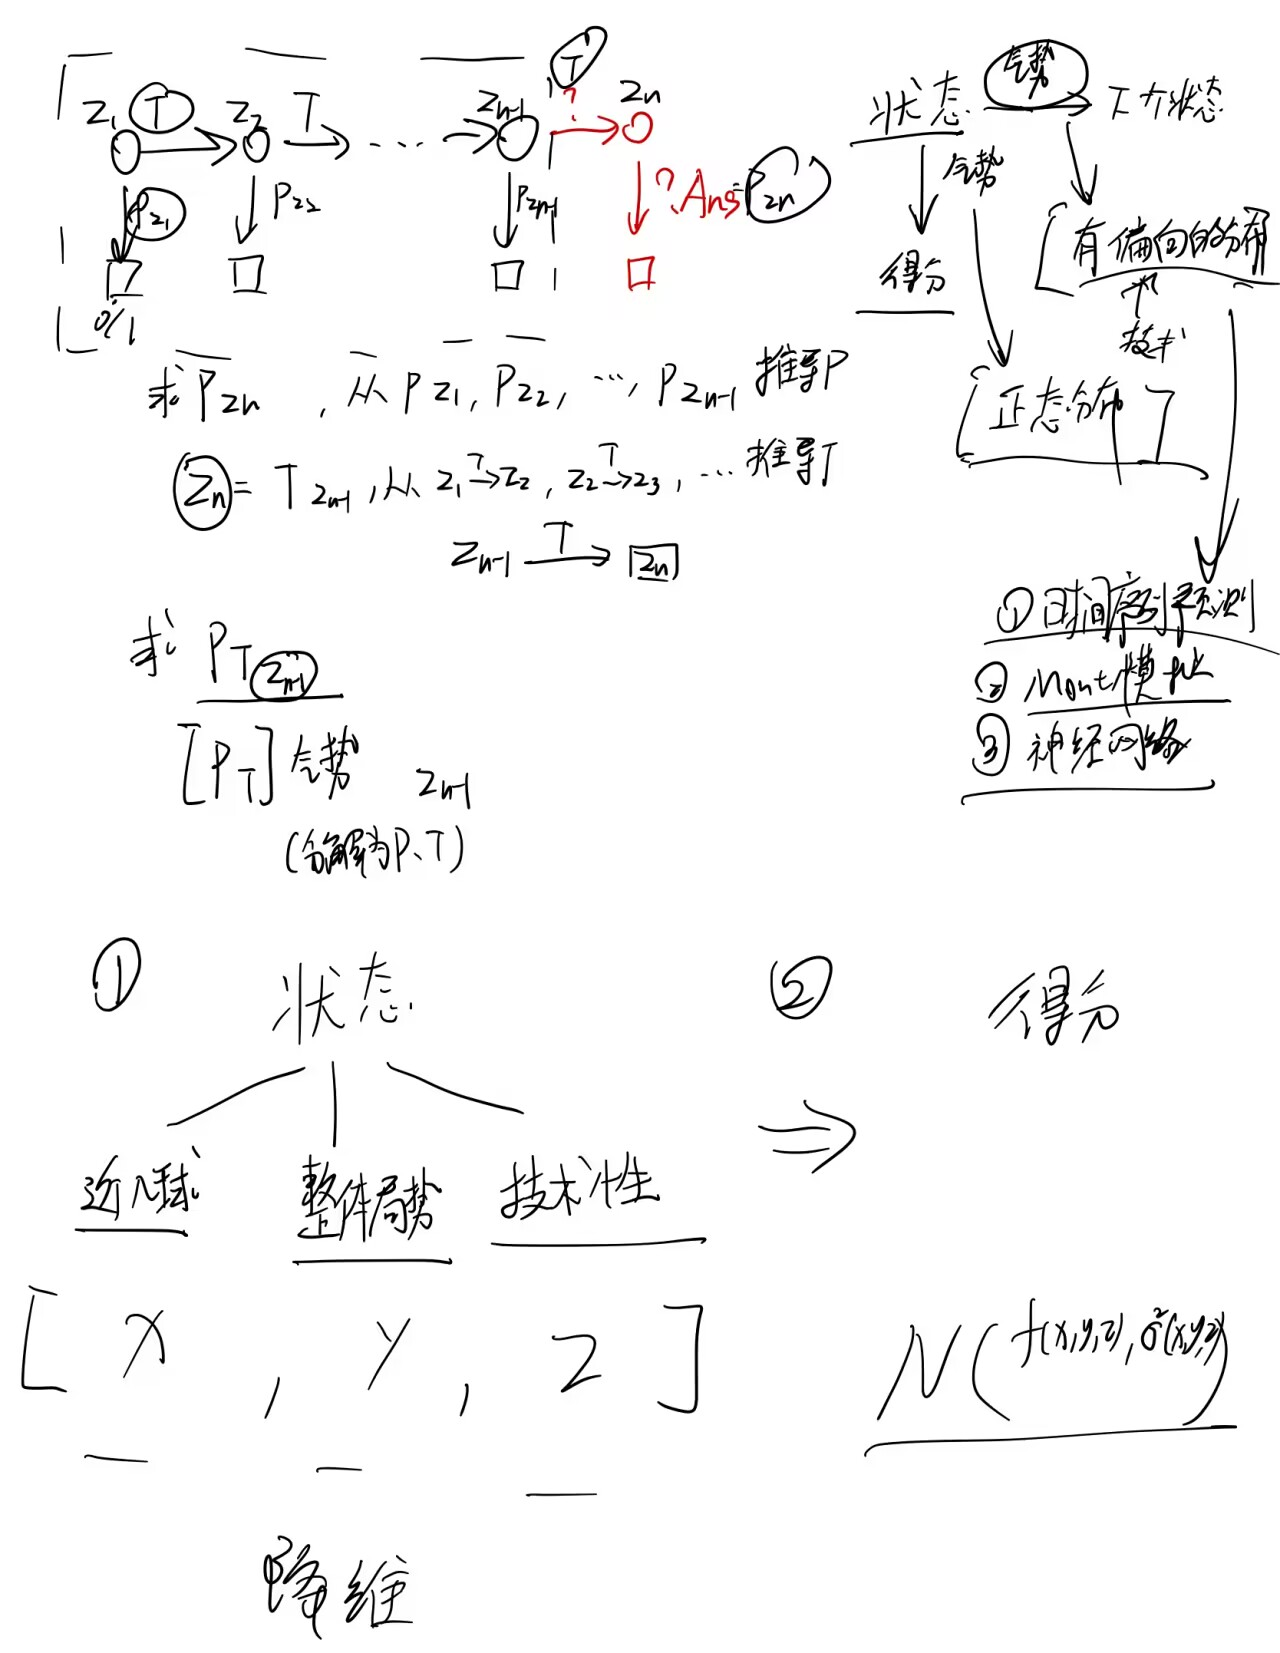 T
Z₁ T Z₂ T … Zn-1 ? Zn
Pz₁ Pz₂ Pzn-1 ? Ans=Pzn
0/1
求 Pzn ，从 Pz₁, Pz₂, …, Pzn-1 推导P
Zn = T zn-1，从 Z₁ T→ Z₂, Z₂ T→ Z₃, … 推导T
Zn-1 T→ Zn
求 PT Zn-1
[PT] 气势 Zn-1
(分解为P、T)
状态 气势 下个状态
气势
得分
有偏向的分布
技术
正态分布
① 时间序列预测
② Mont模拟
③ 神经网络
① 状态
近几球 整体局势 技术性
[ x , y , z ]
降维
⇒
② 得分
N(f(x,y,z), σ²(x,y,z))